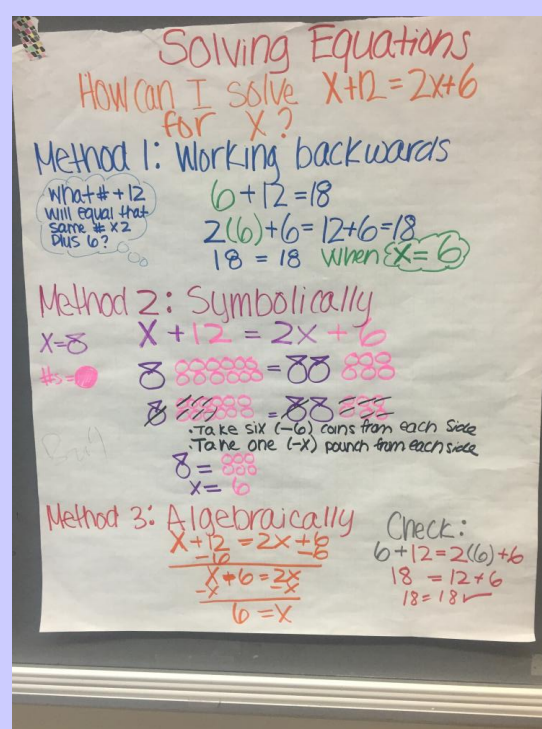 Solving Equations
How can I solve x+12=2x+6
for x?
Method 1: Working backwards
What # +12
will equal that
same # x2
Plus 6?
6+12=18
2(6)+6=12+6=18
18 = 18 when x=6
Method 2: Symbolically
x + 12 = 2x + 6
X=8
#s=
=
=
·Take six (-6) coins from each side
·Take one (-x) pouch from each side
8 =
x= 6
Method 3: Algebraically
x+12 = 2x+6
-6 -6
x+6=2x
-x -x
6 =x
Check:
6+12=2(6)+6
18 = 12+6
18=18✓